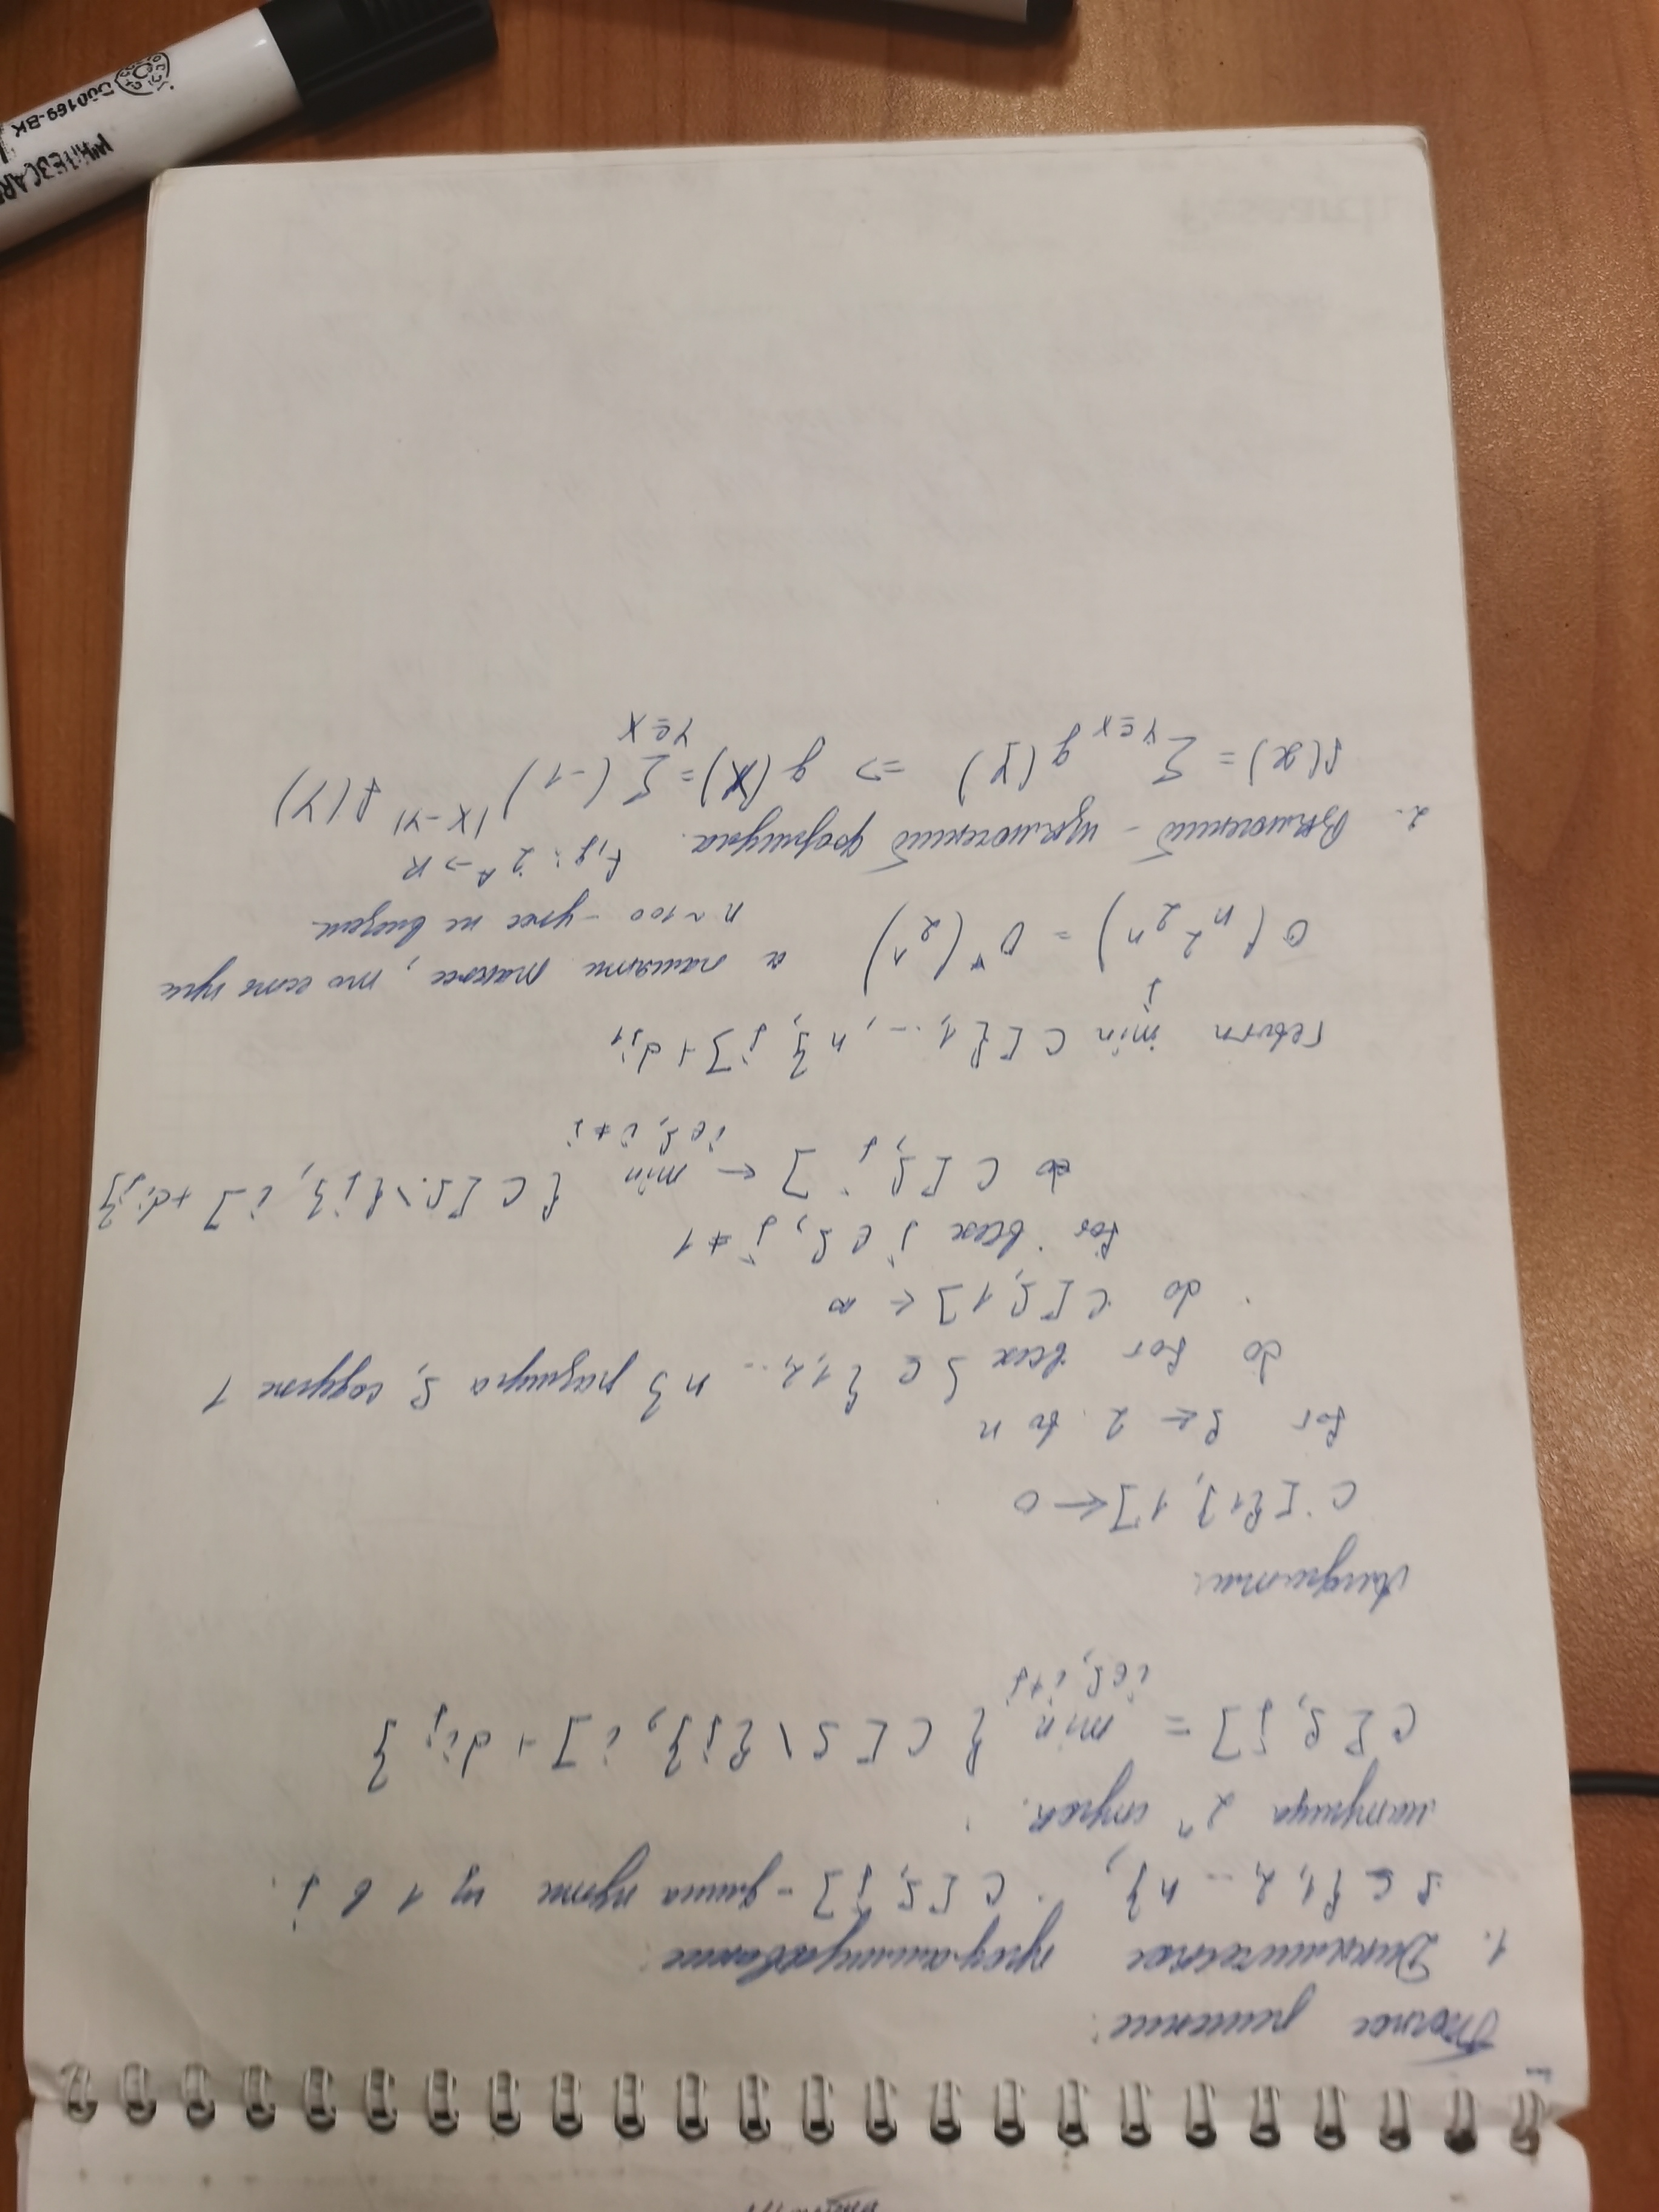 Точное решение:
1. Динамическое программирование:
S ⊆ {1, 2, .. n}, C [S, j] - длина пути из 1 в j.
матрица 2^n строк.
C [S, j] = min { C [S \ {j}, i] + dij }
i∈S, i≠j
Алгоритм:
C [{1}, 1] ← 0
for S ← 2 to n
do for всех S ⊆ {1,2,.. n} размера S, содерж 1
do C [S, 1] ← ∞
for всех j ∈ S, j ≠ 1
do C [S, j] ← min {C [S \ {j}, i] + dij}
i∈S, i≠j
return min C [{1, ..., n}, j] + dj1
j
O(n^2 2^n) = O*(2^n) а памяти также, то есть при
n ~ 100 - уже не влезем
2. Включений - исключений формула. f, g : 2^A → R
f(x) = ∑ g(Y) => g(X) = ∑ (-1)^|X-Y| f(Y)
Y⊆X Y⊆X
WHITEBCAR
D00169-BK